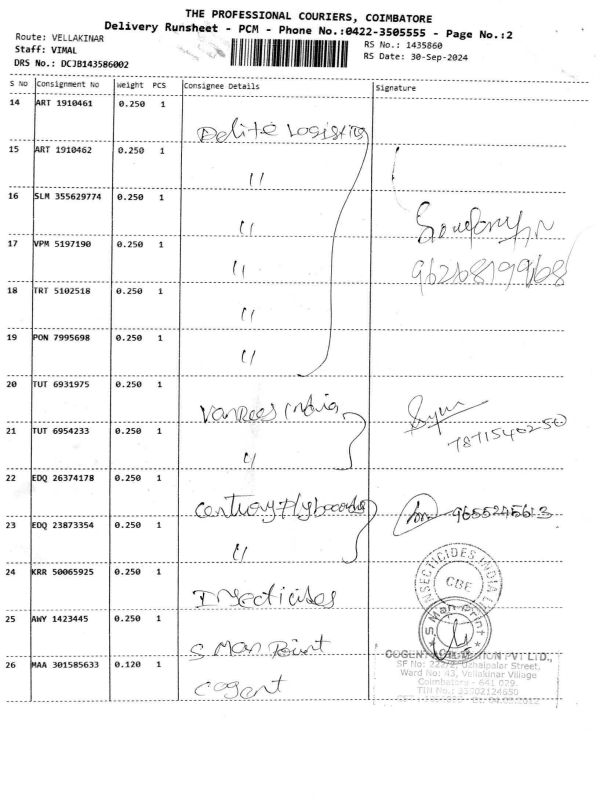 THE PROFESSIONAL COURIERS, COIMBATORE
Delivery Runsheet - PCM - Phone No.:0422-3505555 - Page No.:2
Route: VELLAKINAR
Staff: VIMAL
DRS No.: DCJB143586002
RS No.: 1435860
RS Date: 30-Sep-2024
S No Consignment No Weight PCS Consignee Details Signature
14 ART 1910461 0.250 1 Delite Logistics
15 ART 1910462 0.250 1 "
16 SLM 355629774 0.250 1 "
17 VPM 5197190 0.250 1 "
9626819968
18 TRT 5102518 0.250 1 "
19 PON 7995698 0.250 1 "
20 TUT 6931975 0.250 1 India
7871540250
21 TUT 6954233 0.250 1 "
22 EDQ 26374178 0.250 1 Plyboards 9655245613
23 EDQ 23873354 0.250 1 "
24 KRR 50065925 0.250 1 Insecticides
INSECTICIDES INDIA
CBE
25 AWY 1423445 0.250 1 S Man Point
S Man Print
26 MAA 301585633 0.120 1 Cogent
PVT LTD.,
Street,
Ward No: 43, Vellakinar Village
Coimbatore - 641 029.